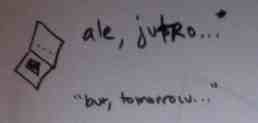 ale, jutro...*
"but, tomorrow..."